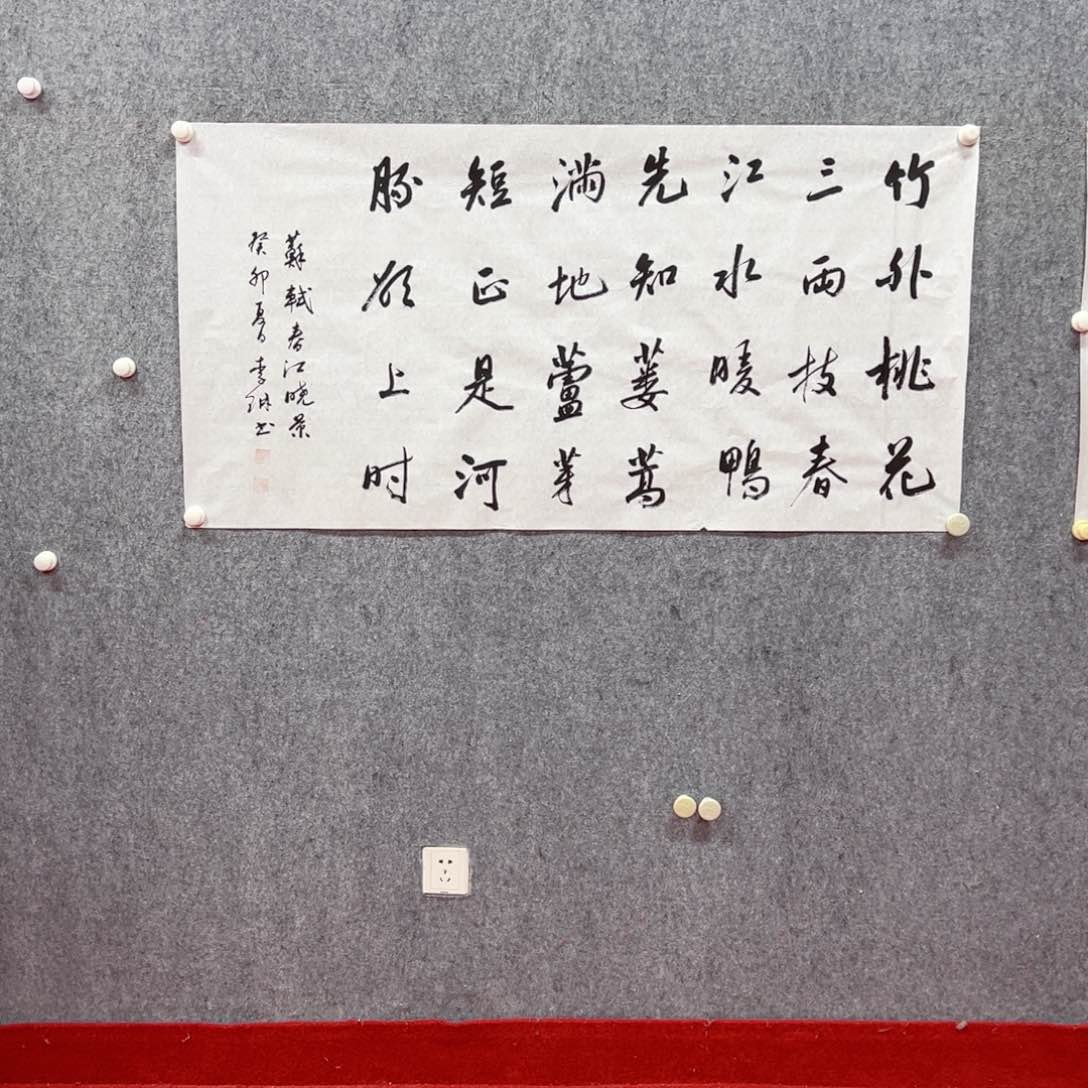 竹外桃花
三两枝春
江水暖鴨
先知蔞蒿
满地蘆芽
短正是河
豚欲上时
蘇軾春江晓景
癸卯夏日李琳书